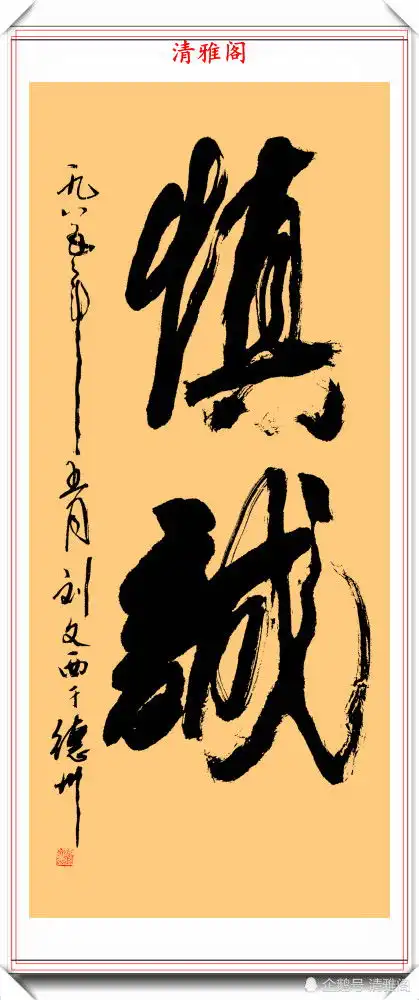 清雅阁
慎誠
一九八五年五月刘文西于德州
企鹅号 清雅阁